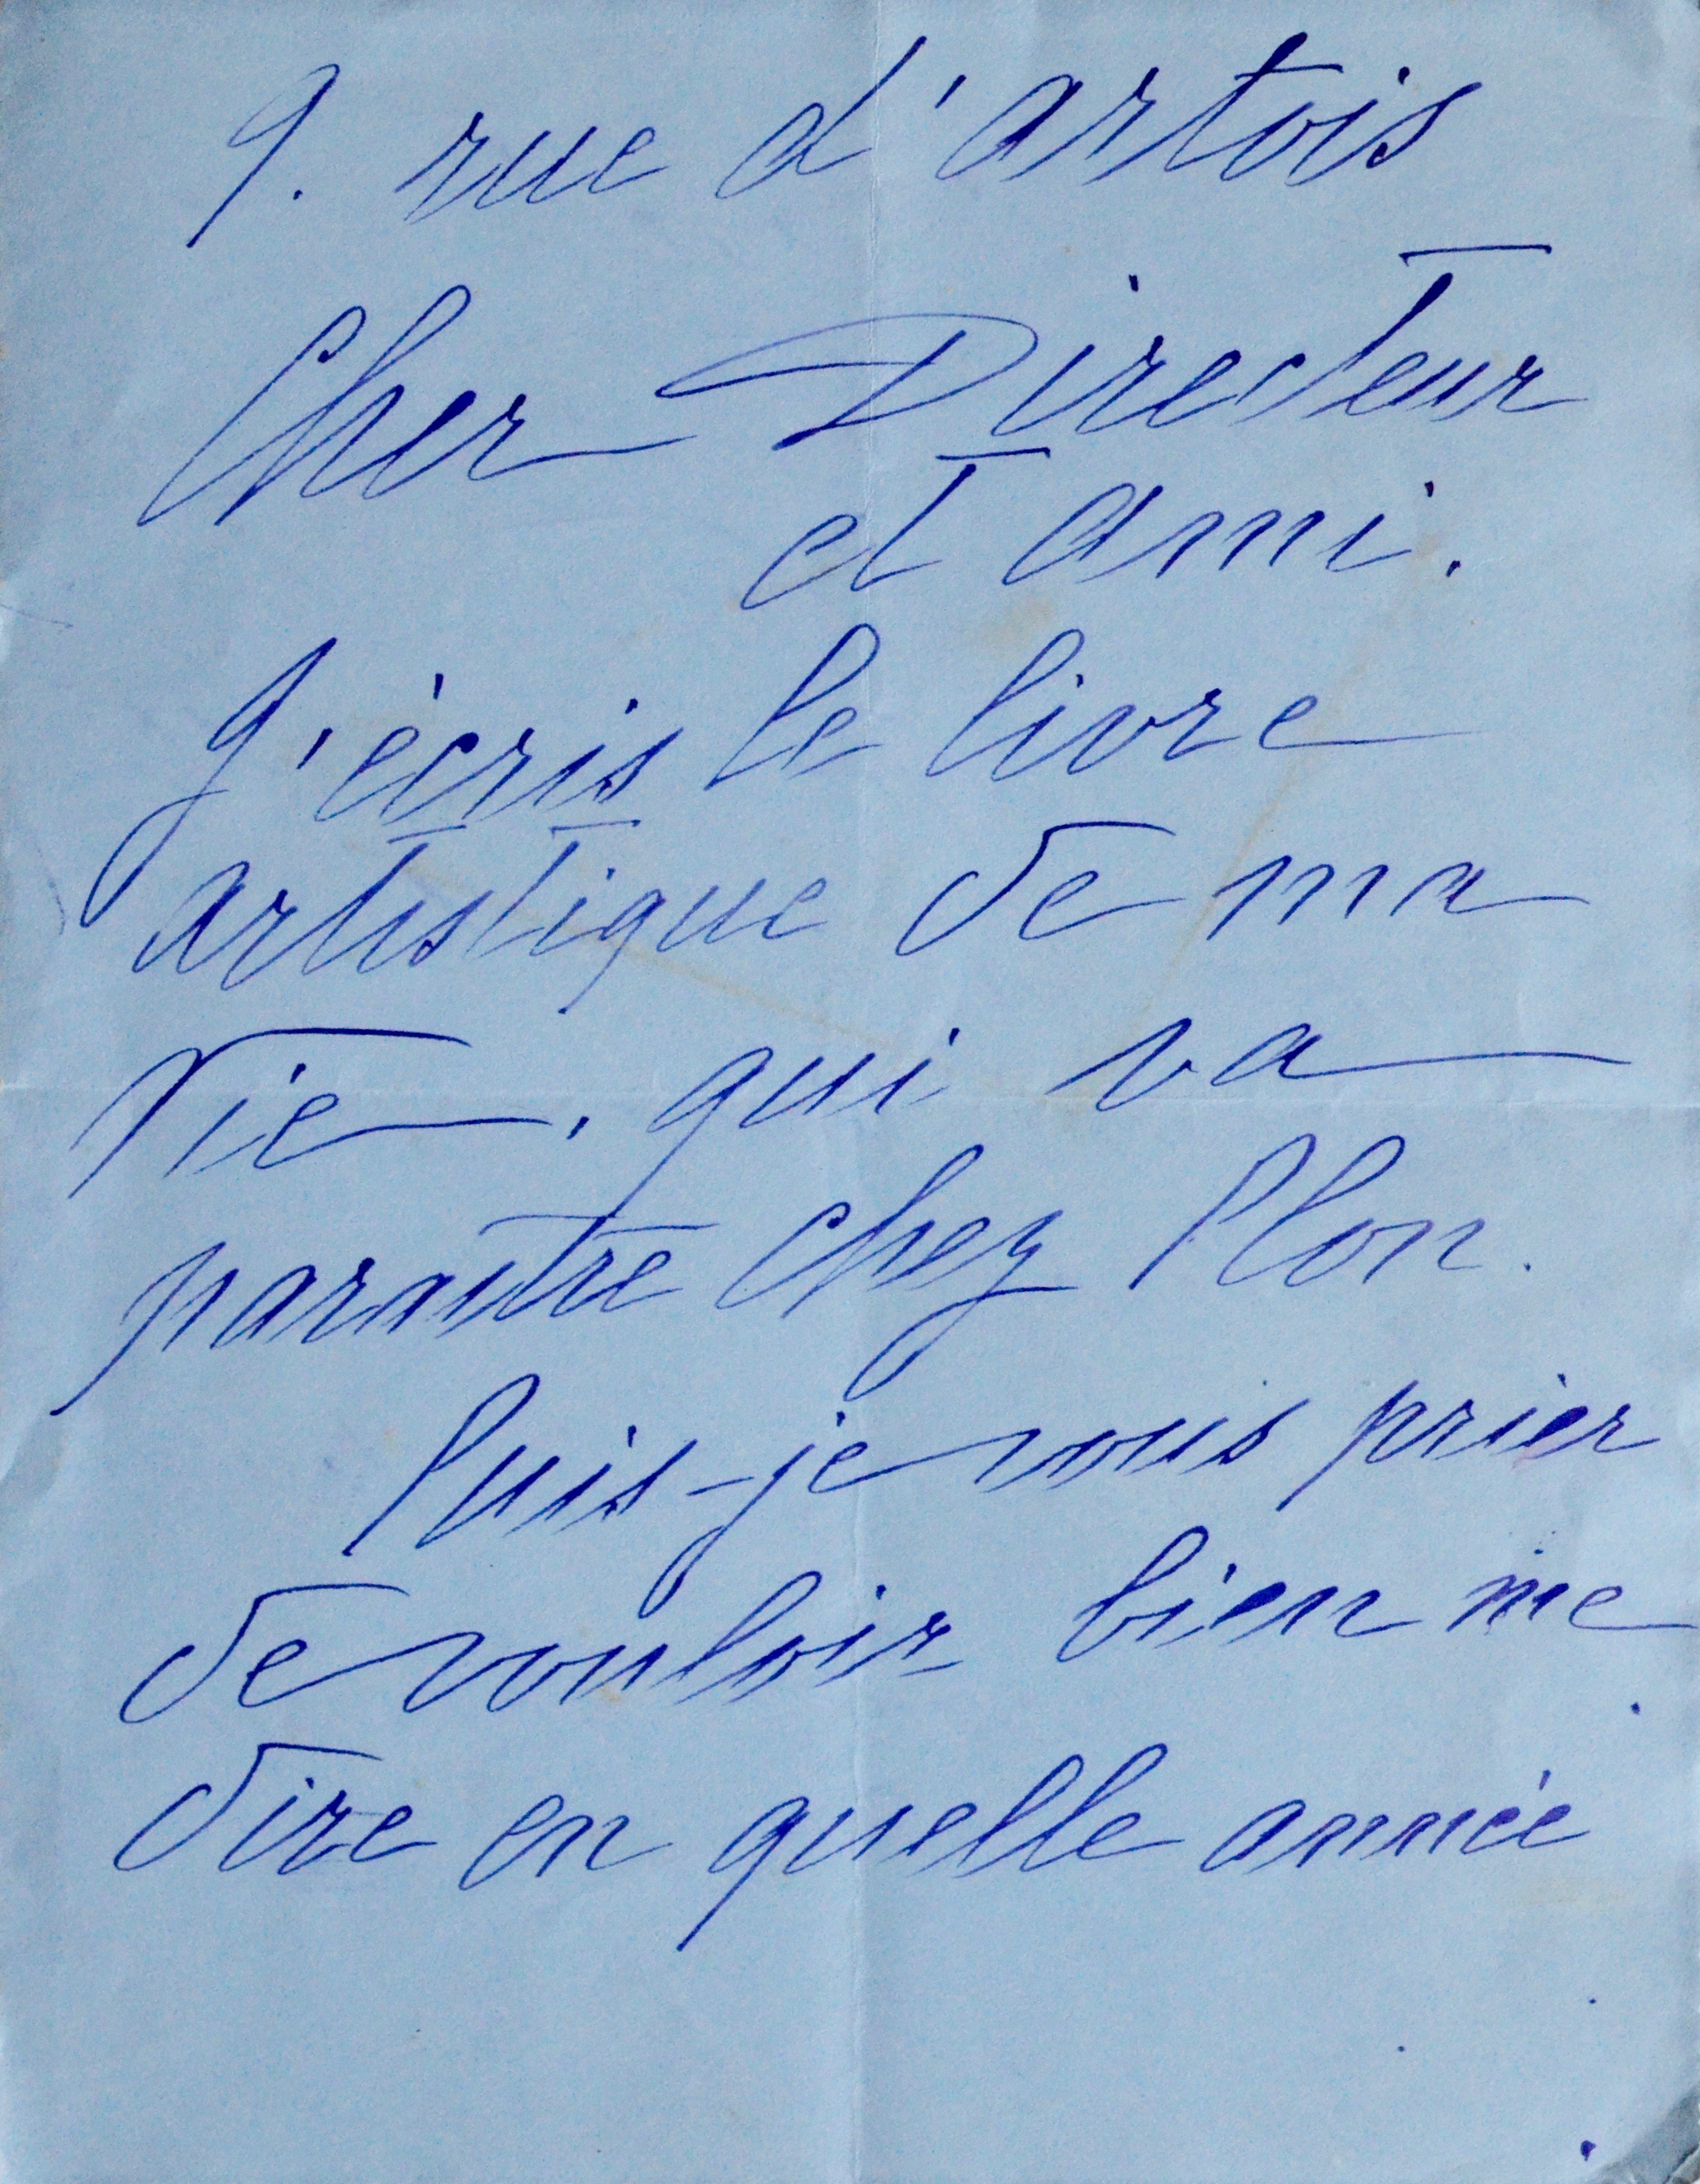 9. rue d'artois
Cher Directeur
et ami.
J'écris le livre
artistique de ma
Vie. qui va
paraitre chez Plon.
Puis-je vous prier
de vouloir bien me
dire en quelle année